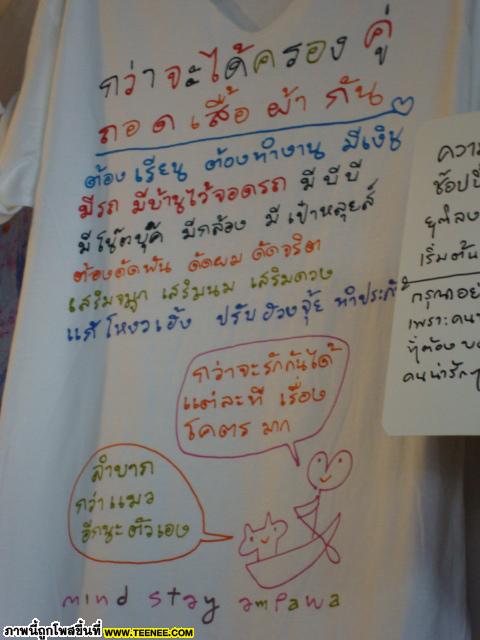 กว่าจะได้ครองคู่
ถอดเสื้อผ้ากัน
ต้องเรียน ต้องทำงาน มีเงิน
มีรถ มีบ้านไว้จอดรถ มีบีบี
มีโน๊ตบุ๊ค มีกล้อง มีเป๋าหลุยส์
ต้องดัดฟัน ดัดผม ดัดจริต
เสริมจมูก เสริมนม เสริมดวง
แก้โหงวเฮ้ง ปรับฮวงจุ้ย ทำประกัน
กว่าจะรักกันได้
แต่ละที เรื่อง
โคตรมาก
ลำบาก
กว่าแมว
อีกนะตัวเอง
mind stay ampawa
ความ
ช๊อปปิ้
ยุคลง
เริ่มต้น
กรุณาอย่
เพราะคน
ที่ต้อง
คนน่ารัก
ภาพนี้ถูกโพสขึ้นที่ WWW.TEENEE.COM